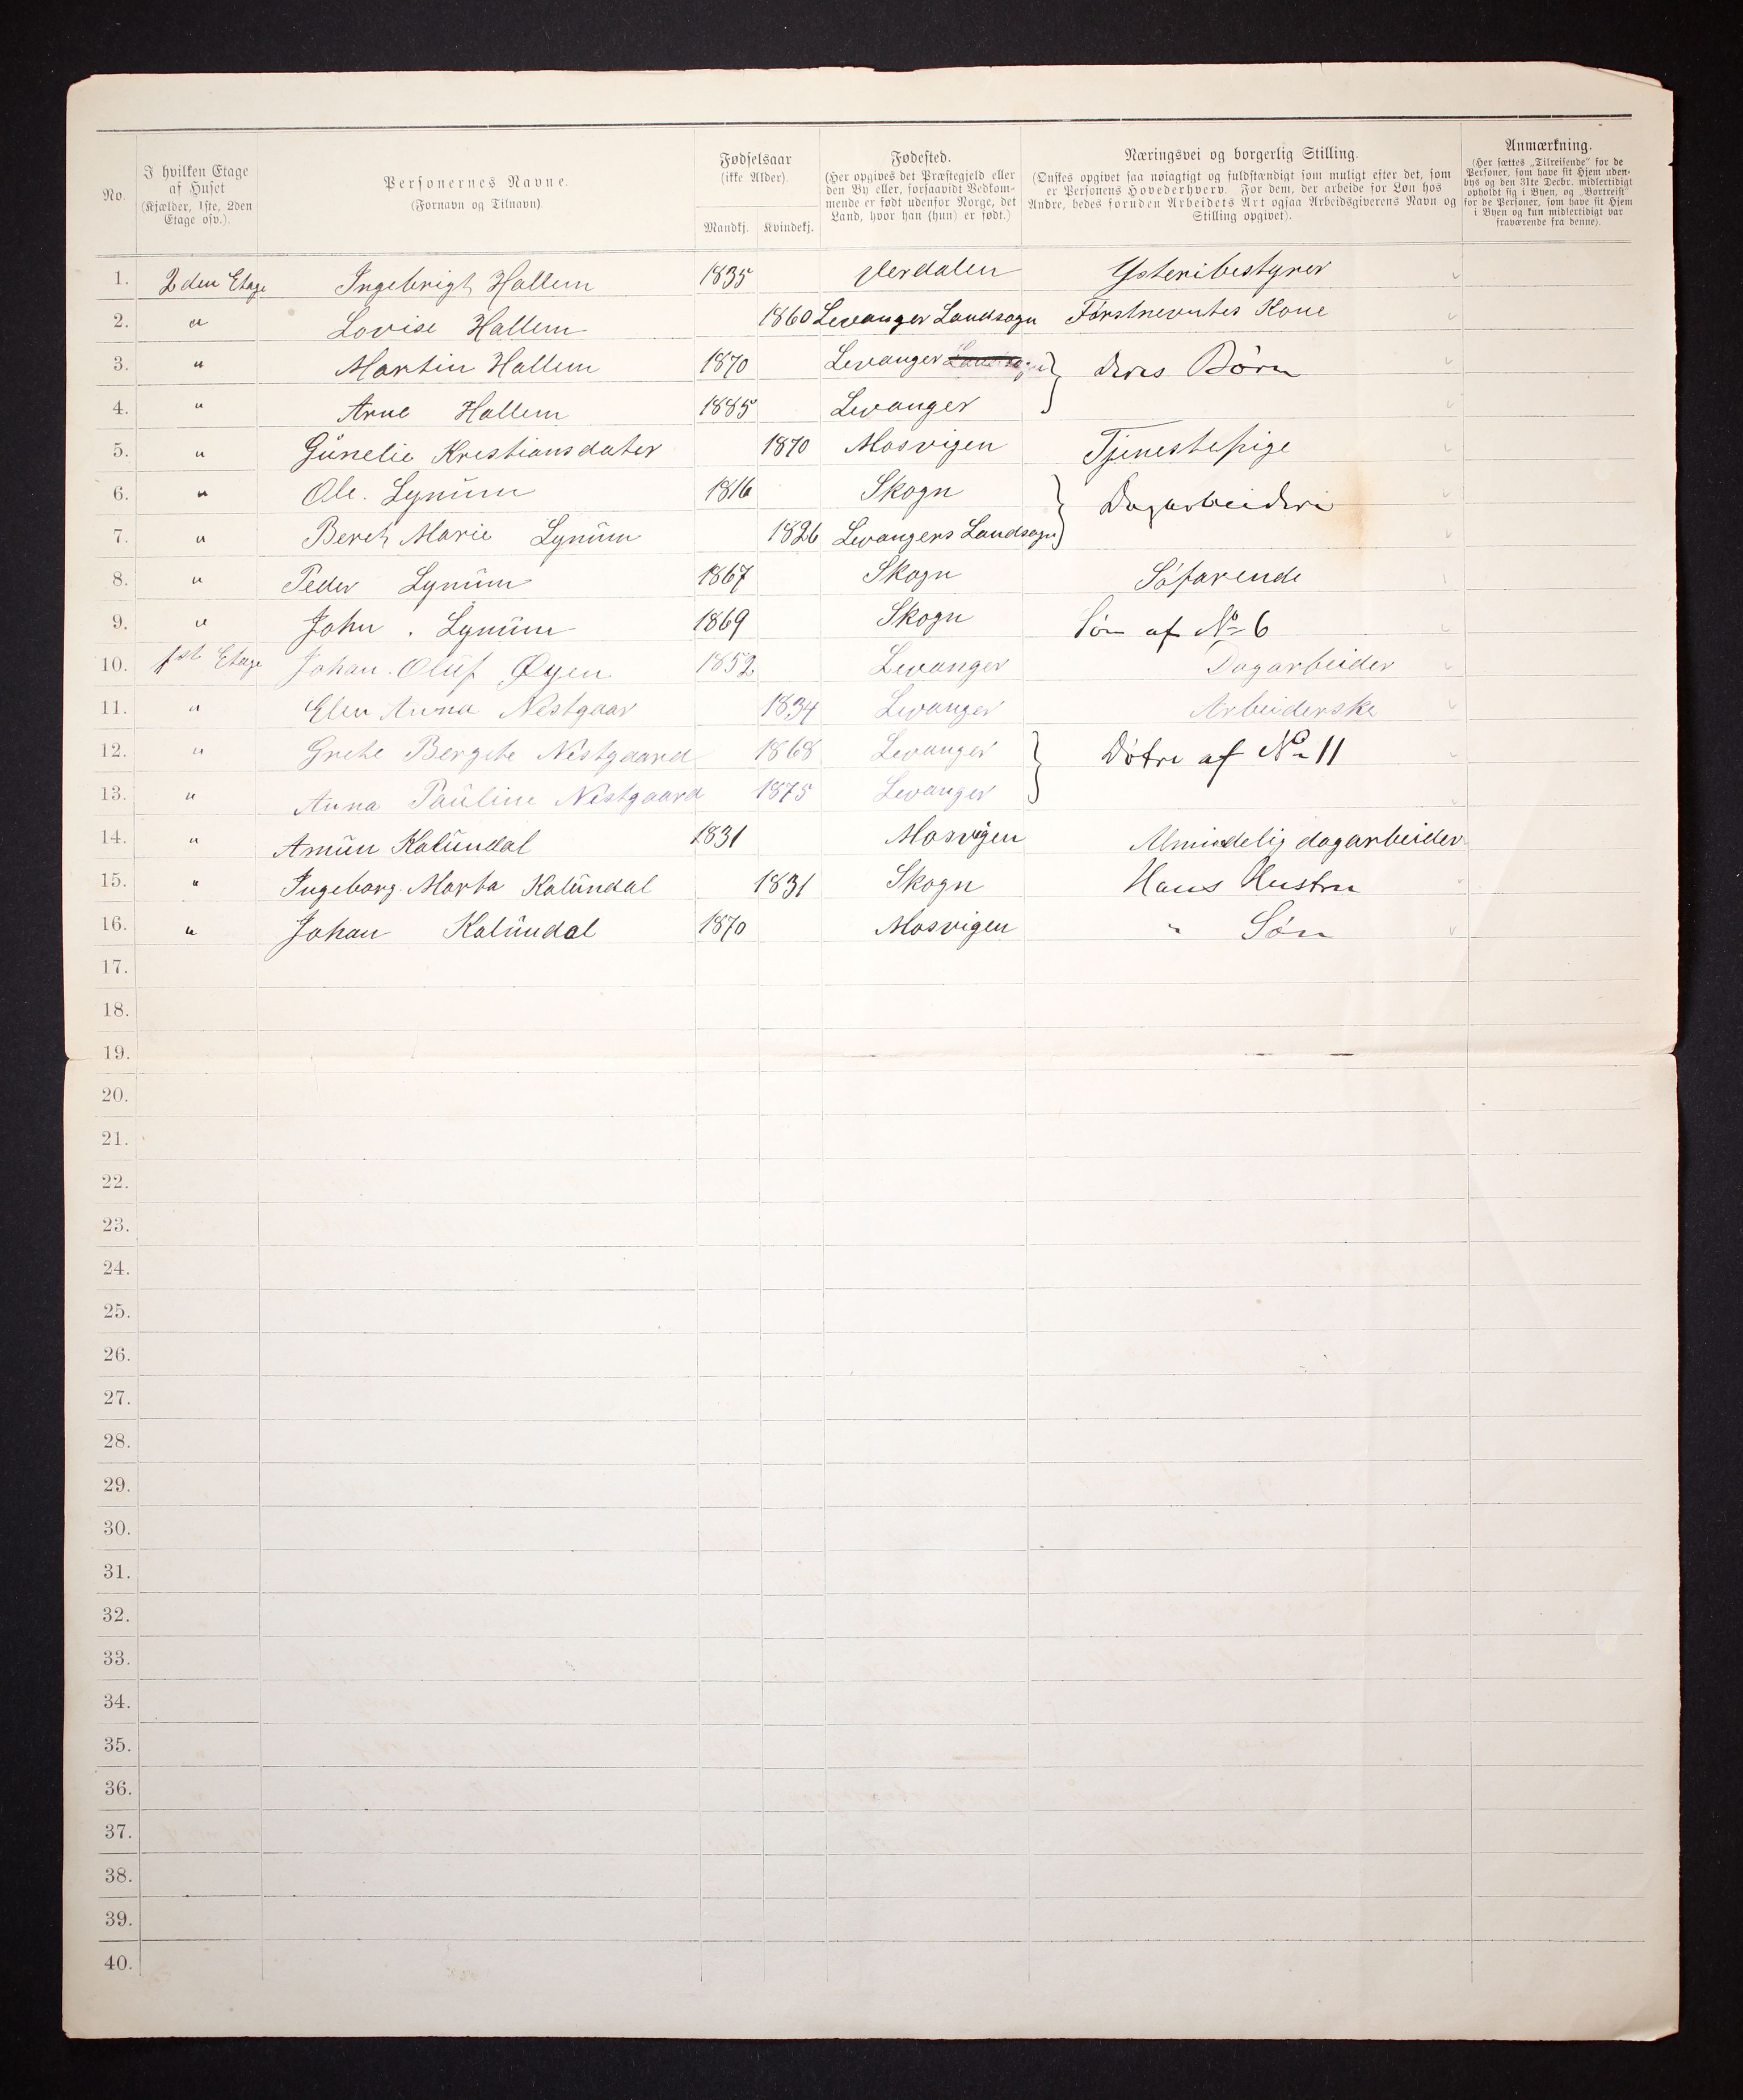 No.
I hvilken Etage
af Huset
(Kjælder, 1ste, 2den
Etage osv.).
Personernes Navne.
(Fornavn og Tilnavn)
Fødselsaar
(ikke Alder).
Mandkj. Kvindekj.
Fødested.
(Her opgives det Præstegjeld eller
den By eller, forsaavidt Vedkom-
mende er født udenfor Norge, det
Land, hvor han (hun) er født.)
Næringsvei og borgerlig Stilling.
(Ønskes opgivet saa nøiagtigt og fuldstændigt som muligt efter det, som
er Personens Hovederhverv. For dem, der arbeide for Løn hos
Andre, bedes foruden Arbeidets Art ogsaa Arbeidsgiverens Navn og
Stilling opgivet).
Anmærkning.
(Her sættes „Tilreisende" for de
Personer, som have sit Hjem uden-
bys og den 31te Decbr. midlertidigt
opholdt sig i Byen, og „Bortreist"
for de Personer, som have sit Hjem
i Byen og kun midlertidigt var
fraværende fra denne).
1. 2den Etage Ingebrigt Hallem 1835 Verdalen Ysteribestyrer
2. " Lovise Hallem 1860 Levanger Landsogn Førstnevntes Kone
3. " Martin Hallem 1870 Levanger Landsogn } Deres Børn
4. " Arne Hallem 1885 Levanger
5. " Günelie Kristiansdater 1870 Mosvigen Tjenestepige
6. " Ole. Lynüm 1816 Skogn } Dagarbeideri
7. " Bereh Marie Lynüm 1826 Levangers Landsogn
8. " Peder Lynüm 1867 Skogn Søfarende
9. " John. Lynüm 1869 Skogn Søn af No 6
10. 1ste Etage Johan. Olüf Øyen 1852 Levanger Dagarbeider
11. " Elen Anna Nestgaar 1834 Levanger Arbeiderske
12. " Grete Bergete Nestgaard 1868 Levanger } Døtre af No 11
13. " Anna Pauline Nestgaard 1875 Levanger
14. " Amün Kalündal 1831 Mosvigen Almindelig dagarbeider
15. " Ingeborg. Marta Kalündal 1831 Skogn Hans Hustru
16. " Johan Kalündal 1870 Mosvigen " Søn
17.
18.
19.
20.
21.
22.
23.
24.
25.
26.
27.
28.
29.
30.
31.
32.
33.
34.
35.
36.
37.
38.
39.
40.